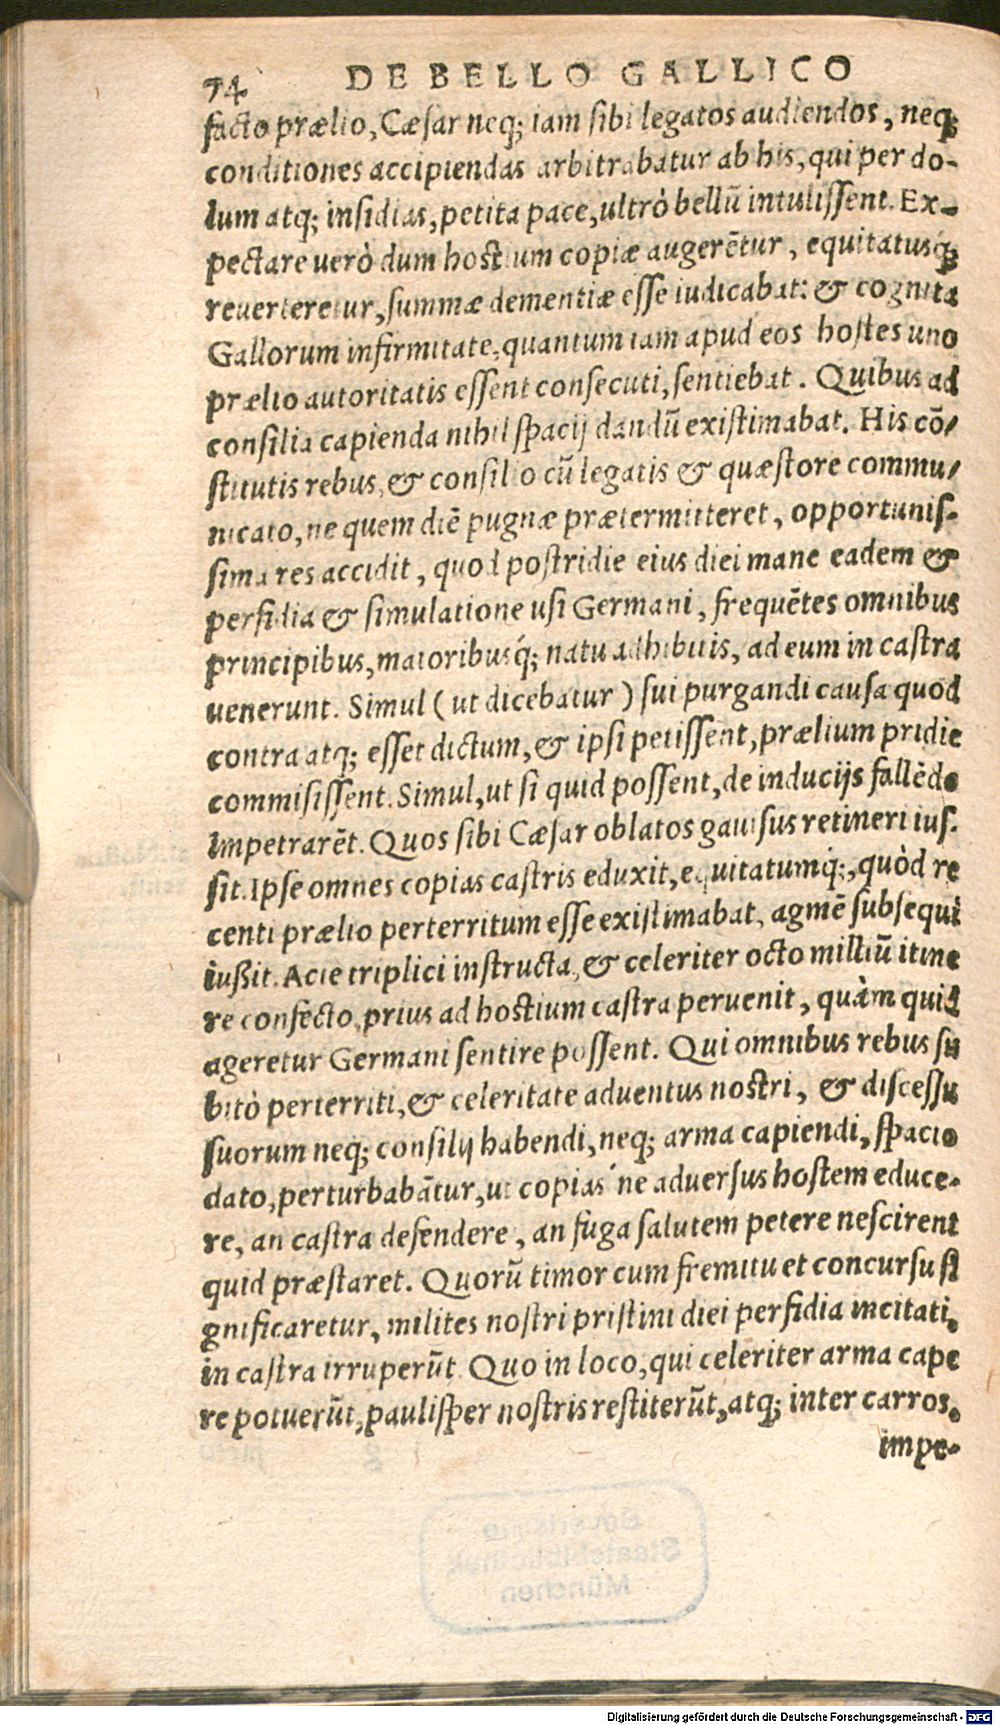 74 DE BELLO GALLICO
facto prælio, Cæsar neq; iam sibi legatos audiendos, neq;
conditiones accipiendas arbitrabatur ab his, qui per do-
lum atq; insidias, petita pace, ultrò bellū intulissent. Ex-
pectare uerò dum hostium copiæ augerētur, equitatusq;
reuerteretur, summæ dementiæ esse iudicabat: & cognita
Gallorum infirmitate, quantum iam apud eos hostes uno
prælio autoritatis essent consecuti, sentiebat. Quibus ad
consilia capienda nihil spacij dandū existimabat. His cō/
stitutis rebus, & consilio cū legatis & quæstore commu/
nicato, ne quem diē pugnæ prætermitteret, opportunis-
sima res accidit, quod postridie eius diei mane eadem &
perfidia & simulatione usi Germani, frequētes omnibus
principibus, maioribusq́; natu adhibitis, ad eum in castra
uenerunt. Simul (ut dicebatur) sui purgandi causa quod
contra atq; esset dictum, & ipsi petissent, prælium pridie
commisissent. Simul, ut si quid possent, de inducijs fallēdo
impetrarēt. Quos sibi Cæsar oblatos gauisus retineri ius-
sit. Ipse omnes copias castris eduxit, equitatumq́;, quòd re
centi prælio perterritum esse existimabat, agmē subsequi
iußit. Acie triplici instructa, & celeriter octo milliū itine
re confecto, prius ad hostium castra peruenit, quàm quid
ageretur Germani sentire possent. Qui omnibus rebus su
bitò perterriti, & celeritate aduentus nostri, & discessu
suorum neq; consilij habendi, neq; arma capiendi, spacio
dato, perturbabātur, ut copias ne aduersus hostem educe-
re, an castra defendere, an fuga salutem petere nescirent
quid præstaret. Quorū timor cum fremitu et concursu si
gnificaretur, milites nostri pristini diei perfidia incitati,
in castra irruperūt. Quo in loco, qui celeriter arma cape
re potuerūt, paulisper nostris restiterūt, atq; inter carros,
impe-
Bayerische
Staatsbibliothek
München
Digitalisierung gefördert durch die Deutsche Forschungsgemeinschaft - DFG